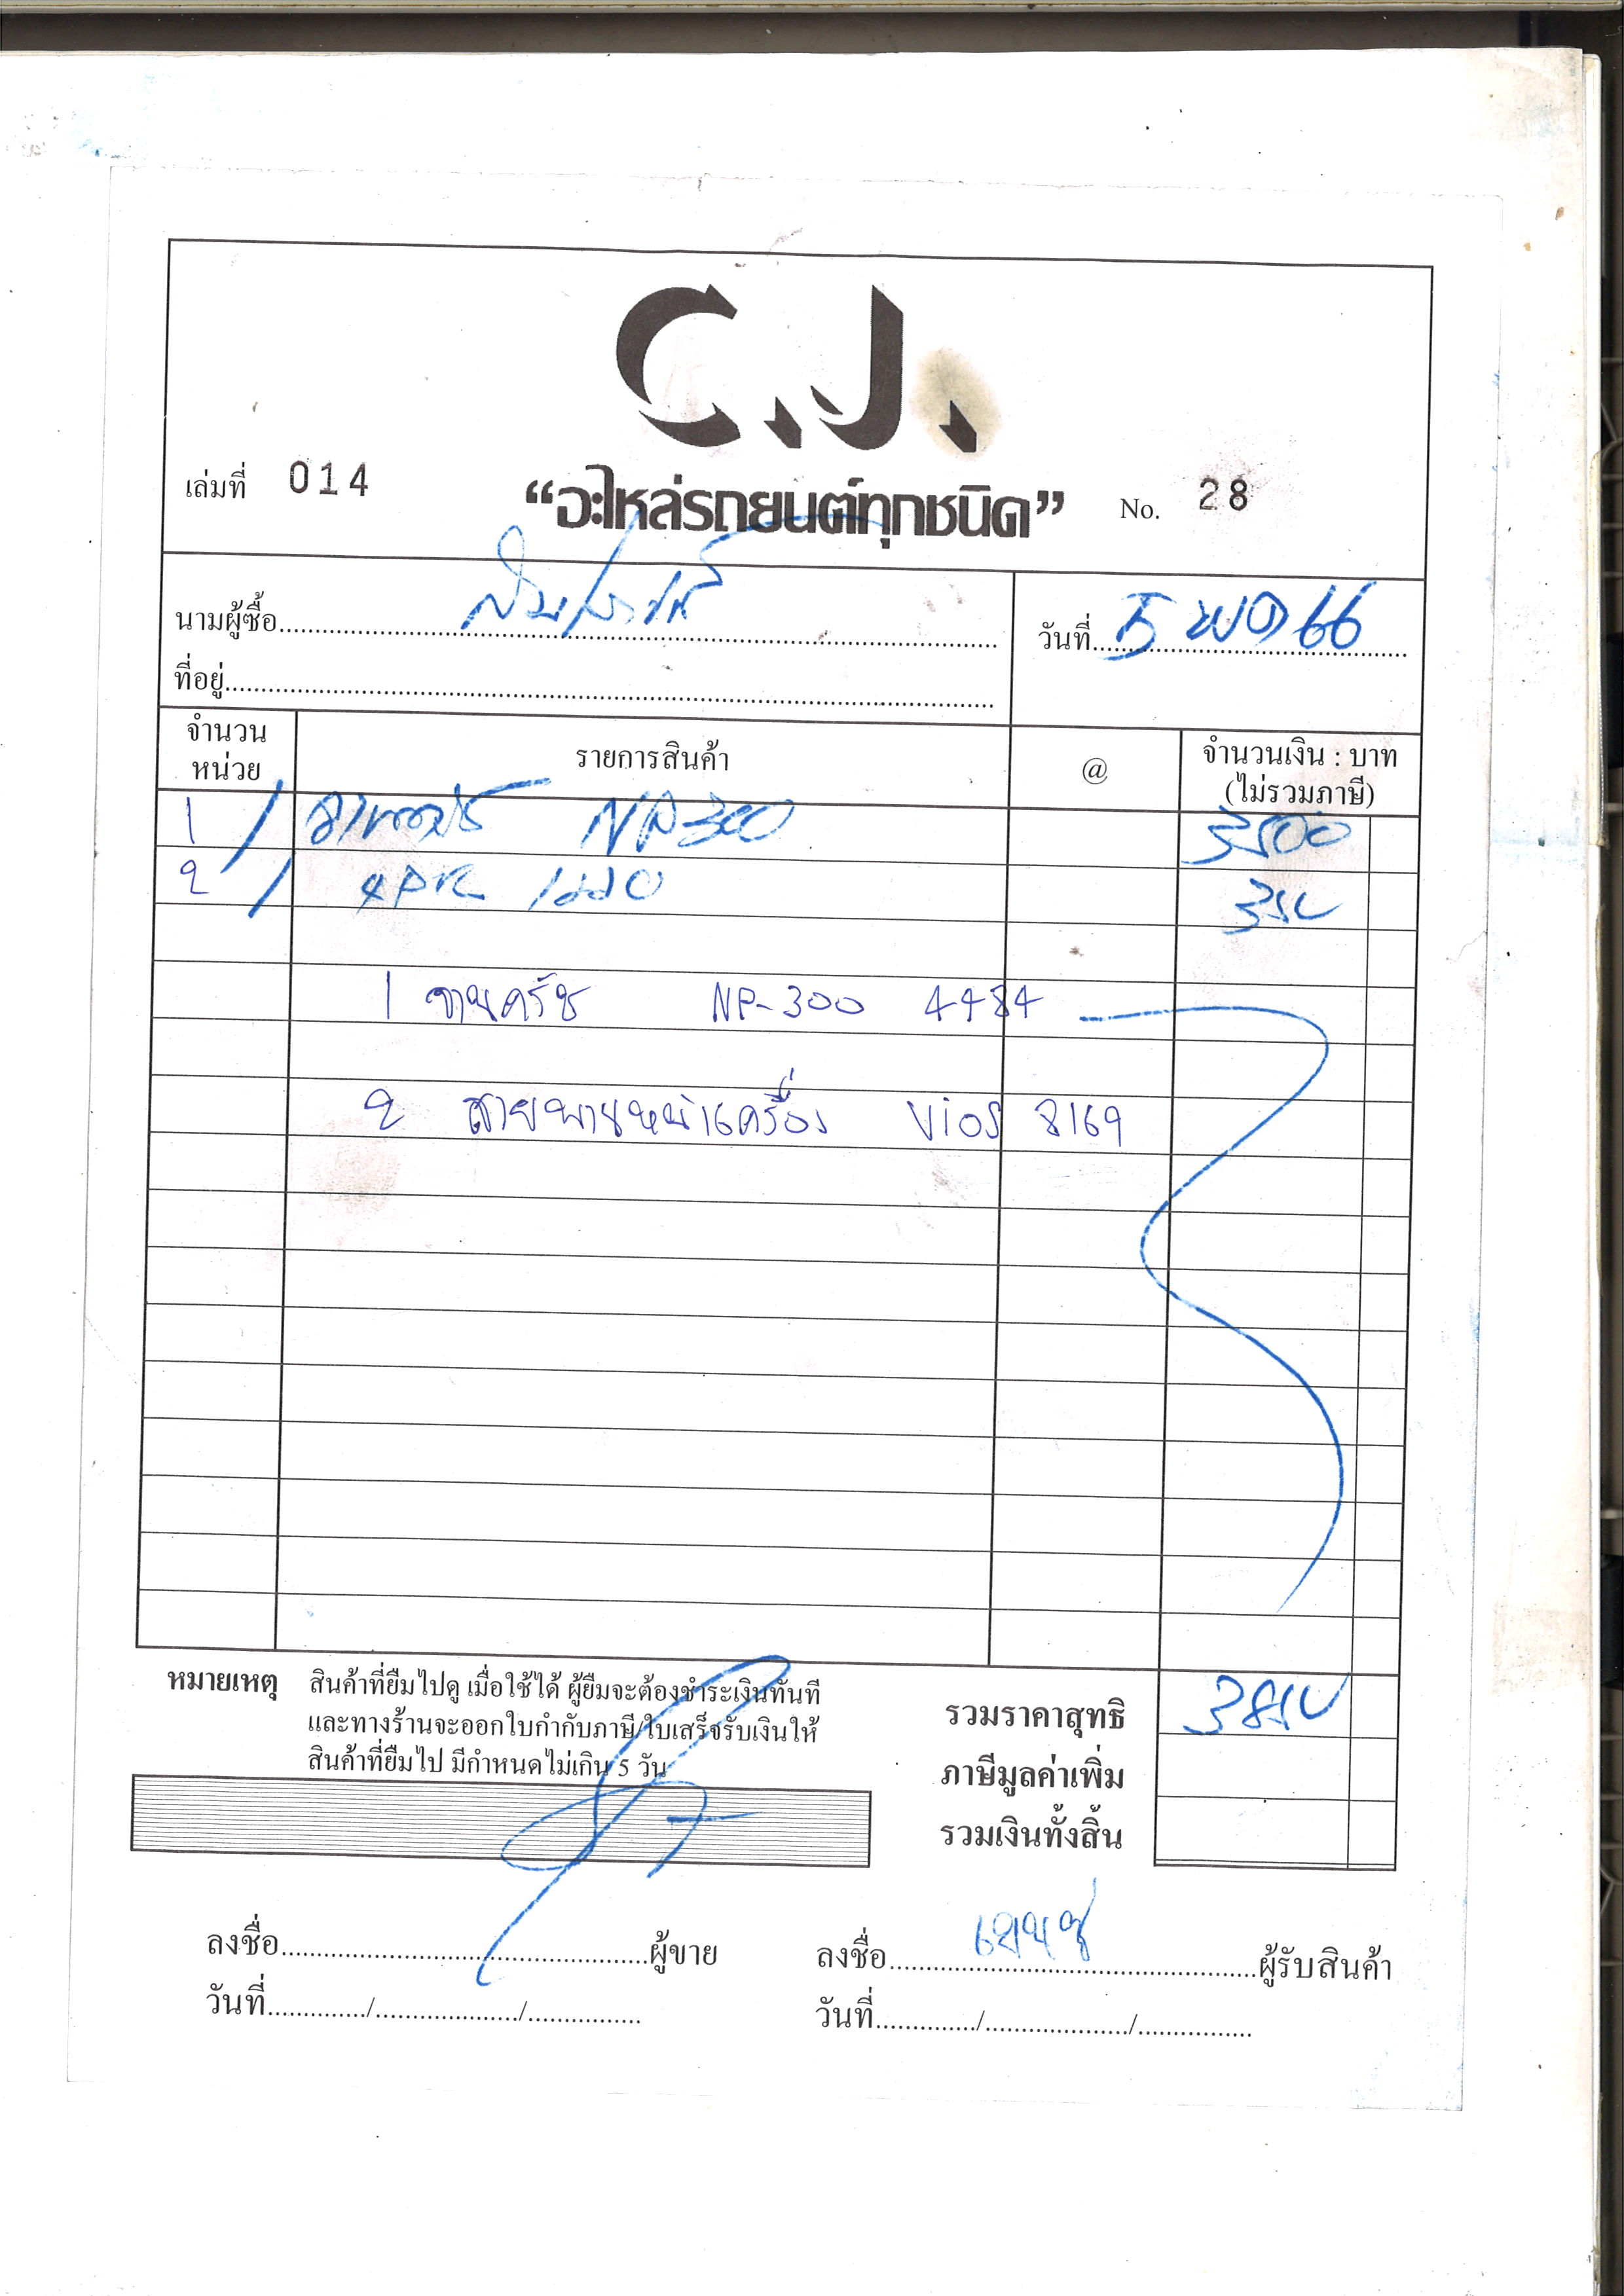 C.J.
เล่มที่ 014
“อะไหล่รถยนต์ทุกชนิด”
No. 28
นามผู้ซื้อ
วันที่ 5 พ.ค. 66
ที่อยู่
จำนวน
หน่วย
รายการสินค้า
@
จำนวนเงิน : บาท
(ไม่รวมภาษี)
1 / NP-300 3500
2 / 4PK 1220 350
1 จานครัช NP-300 4484
2 สายพานหน้าเครื่อง Vios 8169
หมายเหตุ สินค้าที่ยืมไปดู เมื่อใช้ได้ ผู้ยืมจะต้องชำระเงินทันที
และทางร้านจะออกใบกำกับภาษี/ใบเสร็จรับเงินให้
สินค้าที่ยืมไป มีกำหนดไม่เกิน 5 วัน
รวมราคาสุทธิ 3850
ภาษีมูลค่าเพิ่ม
รวมเงินทั้งสิ้น
ลงชื่อ ผู้ขาย
ลงชื่อ ผู้รับสินค้า
วันที่ / /
วันที่ / /